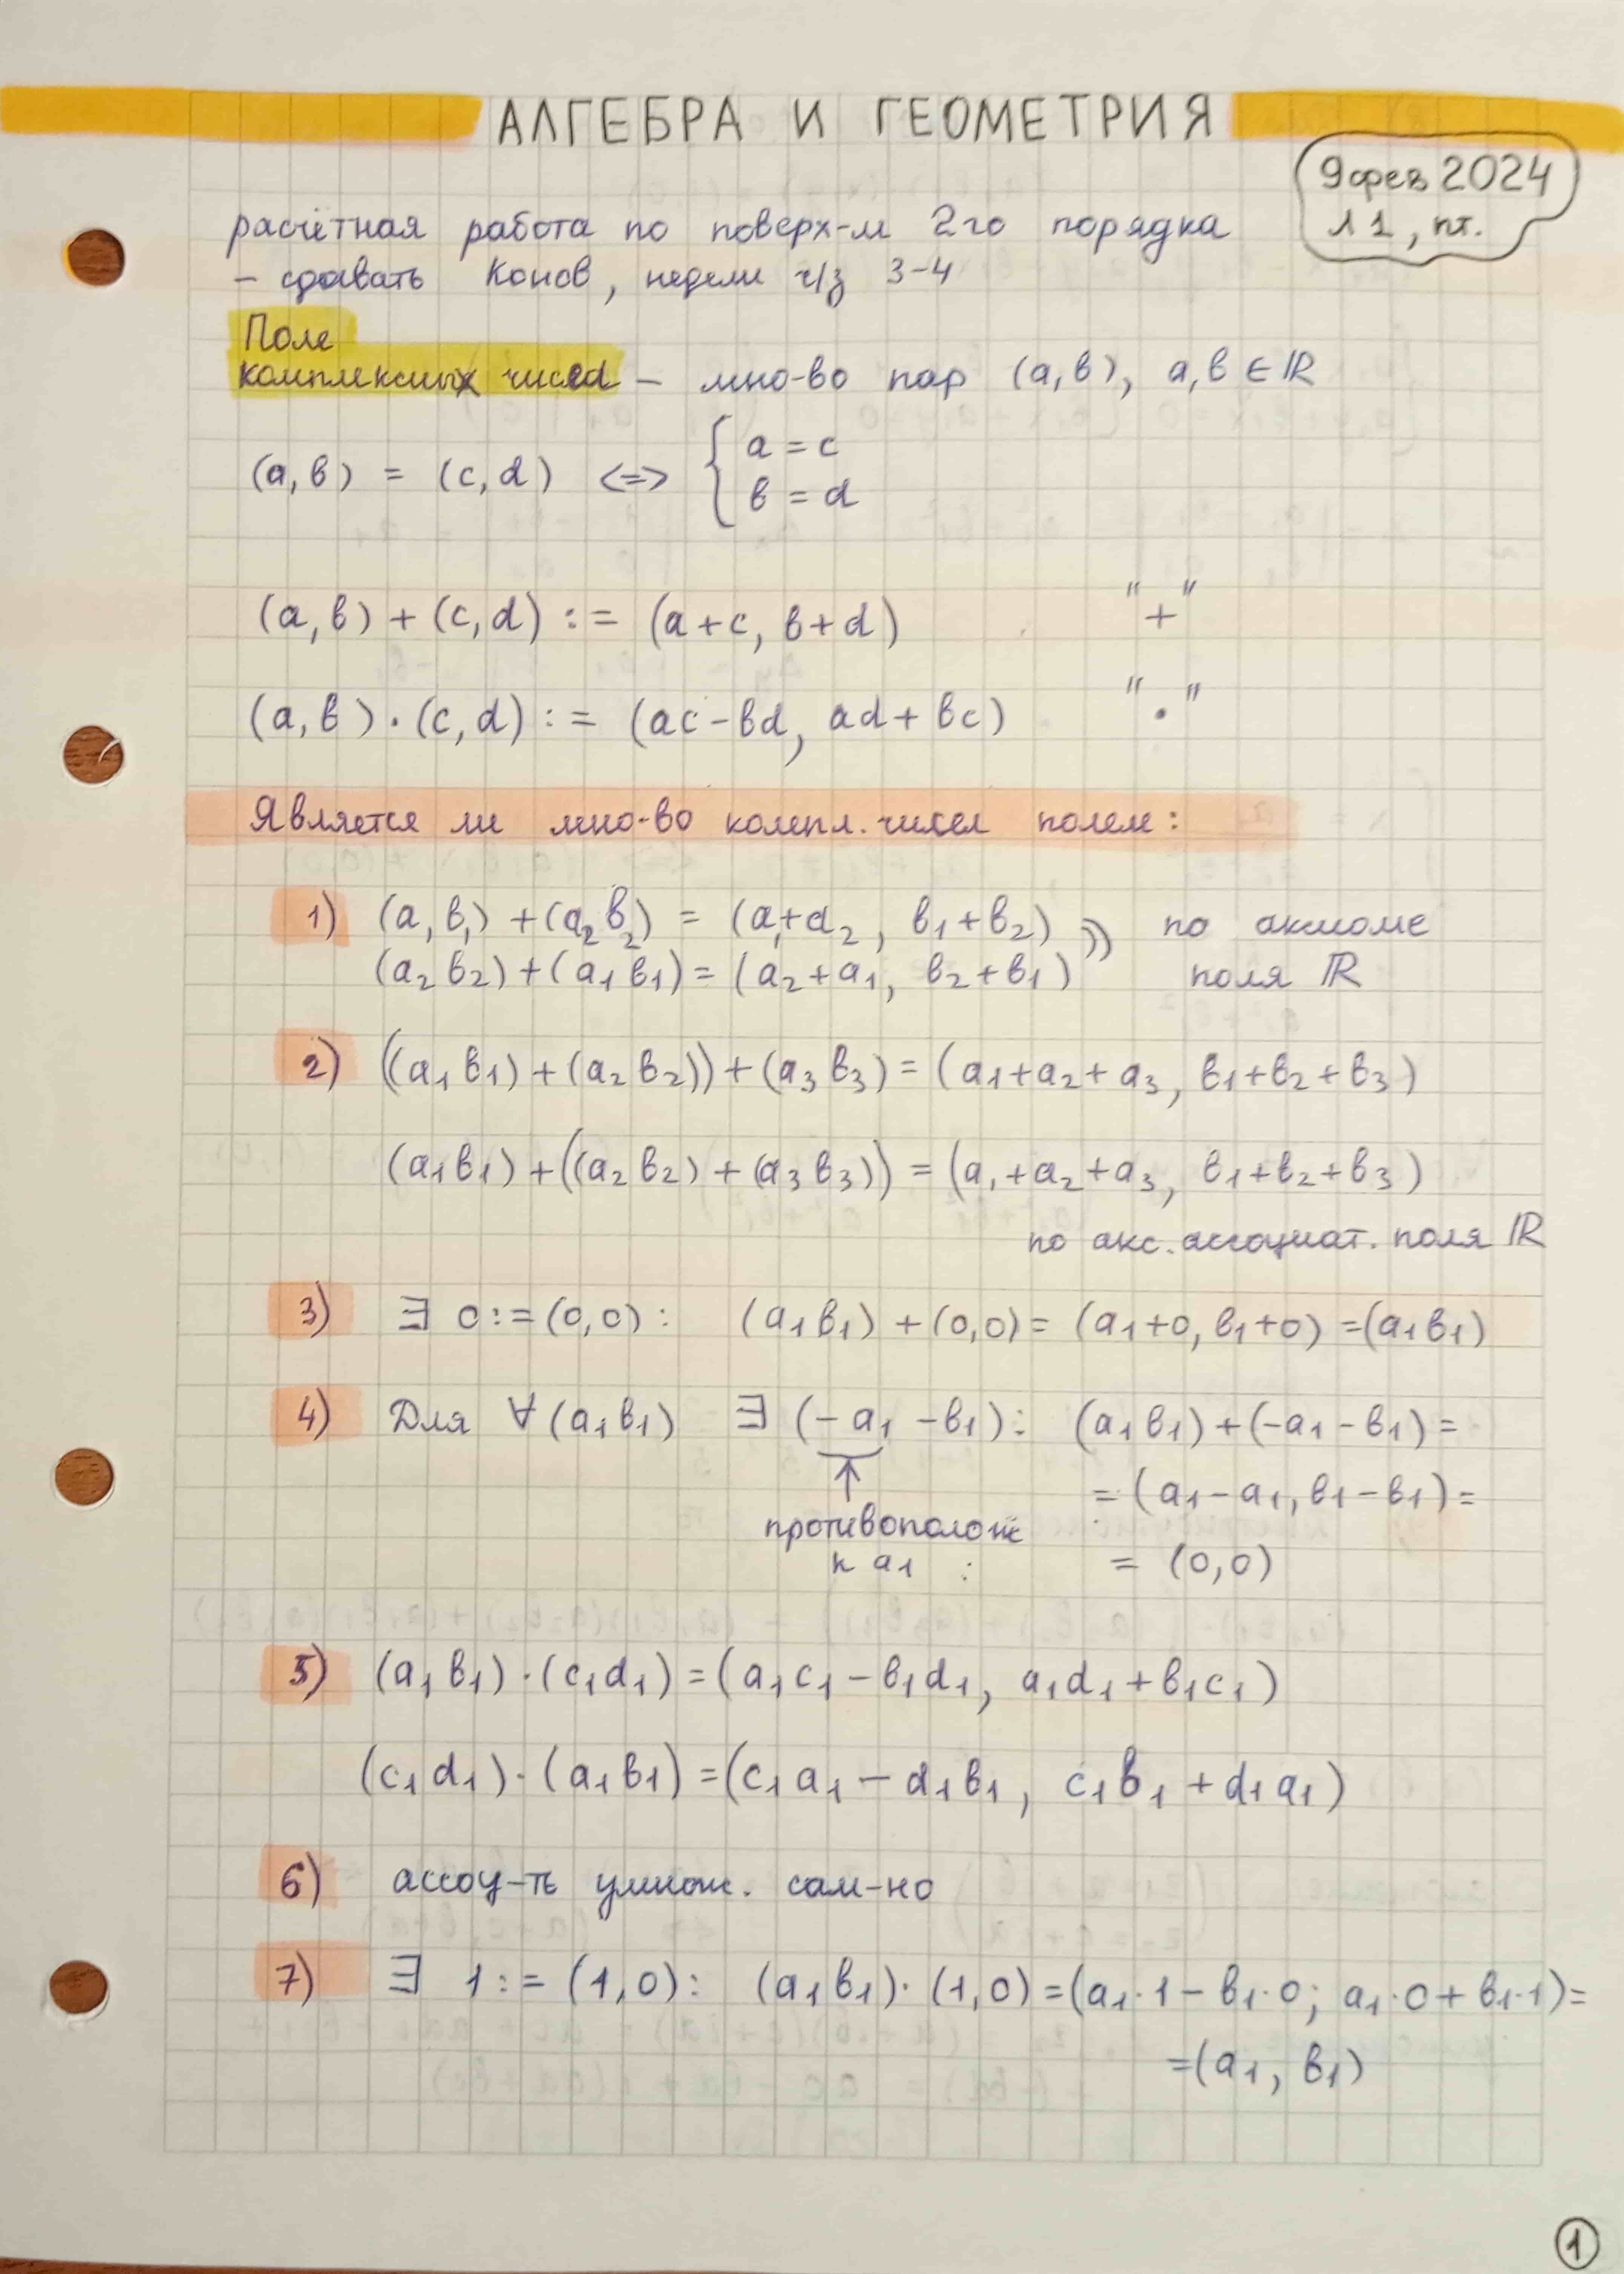 АЛГЕБРА И ГЕОМЕТРИЯ
9 фев 2024
л 1, пт.
расчётная работа по поверх-м 2го порядка
– сдавать Конов, недели ч/з 3-4
Поле
комплексных чисел – мно-во пар (a, b), a, b ∈ ℝ
(a, b) = (c, d) <=> { a = c
b = d
(a, b) + (c, d) := (a+c, b+d) "+"
(a, b) · (c, d) := (ac-bd, ad+bc) "·"
Является ли мно-во компл. чисел полем:
1) (a₁ b₁) + (a₂ b₂) = (a₁+a₂, b₁+b₂) по аксиоме
(a₂ b₂) + (a₁ b₁) = (a₂+a₁, b₂+b₁) поля ℝ
2) ((a₁ b₁) + (a₂ b₂)) + (a₃ b₃) = (a₁+a₂+a₃, b₁+b₂+b₃)
(a₁ b₁) + ((a₂ b₂) + (a₃ b₃)) = (a₁+a₂+a₃, b₁+b₂+b₃)
по акс. ассоциат. поля ℝ
3) ∃ 0 := (0,0) : (a₁ b₁) + (0,0) = (a₁+0, b₁+0) = (a₁ b₁)
4) Для ∀ (a₁ b₁) ∃ (-a₁ -b₁) : (a₁ b₁) + (-a₁ -b₁) =
= (a₁-a₁, b₁-b₁) =
противополож
к a₁ : = (0,0)
5) (a₁ b₁) · (c₁ d₁) = (a₁c₁ - b₁d₁, a₁d₁ + b₁c₁)
(c₁ d₁) · (a₁ b₁) = (c₁a₁ - d₁b₁, c₁b₁ + d₁a₁)
6) ассоц-ть умнож. сам-но
7) ∃ 1 := (1,0) : (a₁ b₁) · (1,0) = (a₁·1 - b₁·0; a₁·0 + b₁·1) =
= (a₁, b₁)
1